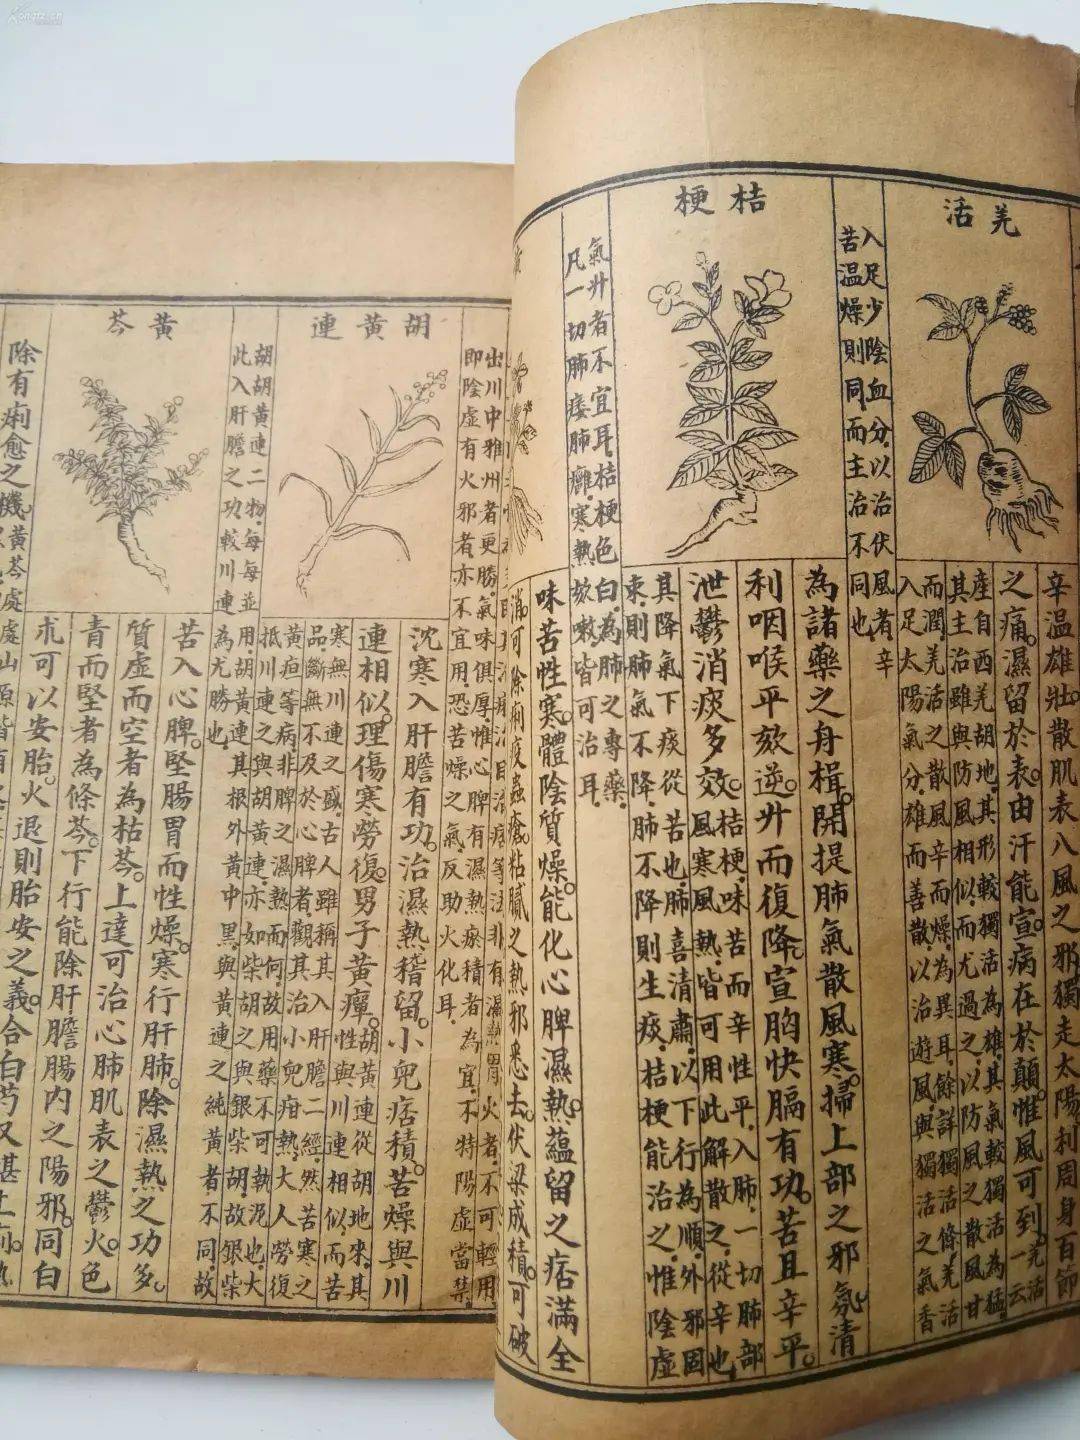 羌活
辛溫雄壯。散肌表八風之邪獨走太陽利周身百節
之痛。濕留於表。由汗能宣。病在於顛。惟風可到。羌活一云
產自西羌胡地。其形較獨活為雄。其氣較獨活為猛。
其主治雖與防風相似。而尤過之。以防風之散風甘
而潤。羌活之散風辛而燥。為異耳。餘詳獨活條。羌活
入足太陽氣分。雄而善散。以治遊風。與獨活之氣香
入足少陰血分。以治伏風者。辛
苦溫燥則同。而主治不同也。
桔梗
為諸藥之舟楫。開提肺氣散風寒。掃上部之邪氛。清
利咽喉平欬逆。升而復降。宣胸快膈有功。苦且辛平。
泄鬱消痰多效。桔梗。味苦而辛。性平。入肺。一切肺部
風寒風熱。皆可用此解散之。從辛也。
其降氣下痰從苦也。肺喜清肅。以下行為順。外邪固
束。則肺氣不降。肺不降則生痰。桔梗能治之。惟陰虛
氣升者不宜耳。桔梗色白。為肺之專藥。
凡一切肺痿肺癰。寒熱欬嗽。皆可治耳。
味苦性寒。體陰質燥。能化心脾濕熱。蘊留之痞滿全
消。可除痢疫蟲瘡。粘膩之熱邪悉去。伏梁成積。可破
等法。非有濕熱胃火者。不可輕用
出川中雅州者更勝。氣味俱厚。惟心脾有濕熱瘀積者為宜。不特陽虛當禁
即陰虛有火邪者亦不宜用。恐苦燥之氣反助火化耳。
胡黃連
沈寒入肝膽有功。治濕熱稽留。小兒痞積。苦燥與川
連相似。理傷寒勞復。男子黃癉。胡黃連從胡地來。其
性與川連相似。而苦
寒無川連之盛。古人雖稱其入肝膽二經。然苦寒之
品。斷無不及於心脾者。觀其治小兒疳熱。大人勞復
黃疸等病。非脾之濕熱而何。故用藥不可執泥也。大
抵川連之與胡黃連。亦如柴胡之與銀柴胡。故銀柴
胡胡黃連二物。每每並用胡黃連。其根外黃中黑。與黃連之純黃者不同。故
此入肝膽之功較川連為尤勝也。
黃芩
苦入心脾。堅腸胃而性燥。寒行肝肺。除濕熱之功多。
質虛而空者為枯芩。上達可治心肺肌表之鬱火。色
青而堅者為條芩。下行能除肝膽腸內之陽邪。同白
朮可以安胎。火退則胎安之義。合白芍又堪止痢。熱
除有痢愈之機。黃芩處處山